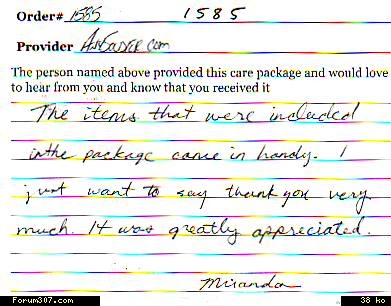 Order# 1585 1585
Provider
The person named above provided this care package and would love
to hear from you and know that you received it
The items that were included
in the package came in handy. I
just want to say thank you very
much. It was greatly appreciated.
Miranda
Forum307.com 38 ko